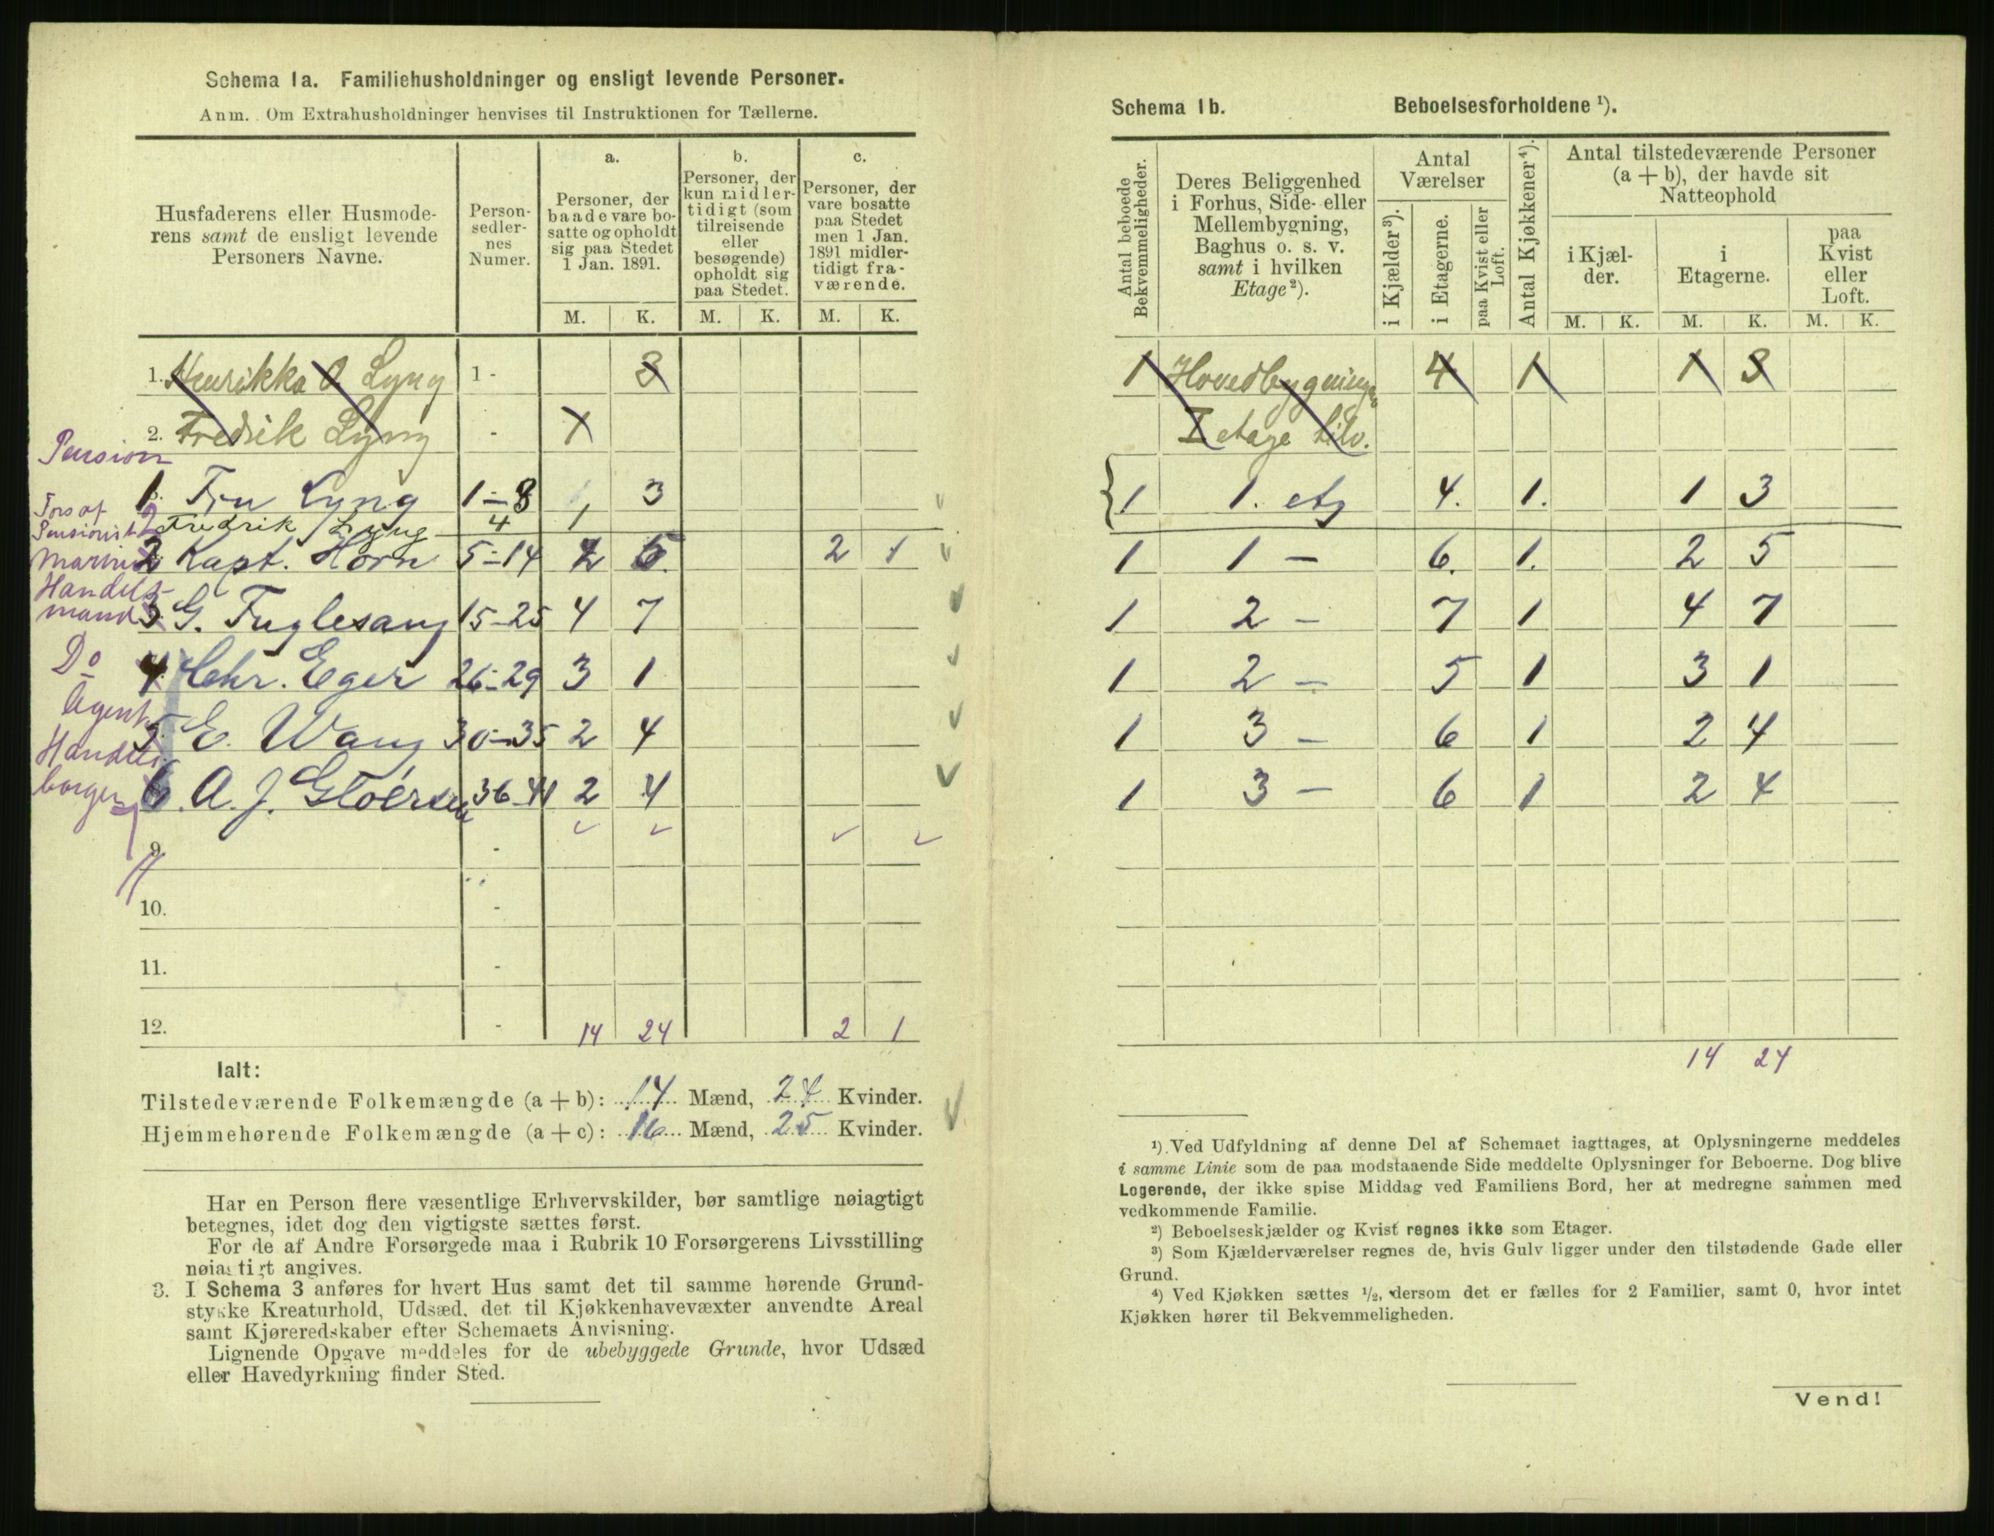 Schema 1a. Familiehusholdninger og ensligt levende Personer.
Anm. Om Extrahusholdninger henvises til Instruktionen for Tællerne.
Husfaderens eller Husmode-
rens samt de ensligt levende
Personers Navne.
Person-
sedler-
nes
Numer.
a.
Personer, der
baade vare bo-
satte og opholdt
sig paa Stedet
1 Jan. 1891.
b.
Personer, der
kun midler-
tidigt (som
tilreisende
eller
besøgende)
opholdt sig
paa Stedet.
c.
Personer, der
vare bosatte
paa Stedet
men 1 Jan.
1891 midler-
tidigt fra-
værende.
M. K. M. K. M. K.
1. Henrikka O. Lyng 1 - 3
2. Fredrik Lyng - 1
Pension
1 Fru Lyng 1-3 3
Fors af
Pensionist
2 Fredrik Lyng 4 1
Marine
2 Kapt. Horn 5-14 2 5 2 1
Handels-
mand
3 G. Fuglesang 15-25 4 7
Do
4 Chr. Eger 26-29 3 1
Agent
5. E. Wang 30-35 2 4
Handels
borger
6. A. J. Gloersen 36-41 2 4
9. -
10. -
11. -
12. - 14 24 2 1
Ialt:
Tilstedeværende Folkemængde (a + b): 14 Mænd, 24 Kvinder.
Hjemmehørende Folkemængde (a + c): 16 Mænd, 25 Kvinder.
Har en Person flere væsentlige Erhvervskilder, bør samtlige nøiagtigt
betegnes, idet dog den vigtigste sættes først.
For de af Andre Forsørgede maa i Rubrik 10 Forsørgerens Livsstilling
nøiagtigt angives.
3. I Schema 3 anføres for hvert Hus samt det til samme hørende Grund-
stykke Kreaturhold, Udsæd, det til Kjøkkenhavevæxter anvendte Areal
samt Kjøreredskaber efter Schemaets Anvisning.
Lignende Opgave meddeles for de ubebyggede Grunde, hvor Udsæd
eller Havedyrkning finder Sted.
Schema 1b. Beboelsesforholdene ¹).
Antal beboede
Bekvemmeligheder.
Deres Beliggenhed
i Forhus, Side- eller
Mellembygning,
Baghus o. s. v.
samt i hvilken
Etage²).
Antal
Værelser
i Kjælder³).
i Etagerne.
paa Kvist eller
Loft.
Antal Kjøkkener⁴).
Antal tilstedeværende Personer
(a + b), der havde sit
Natteophold
i Kjæl-
der.
i
Etagerne.
paa
Kvist
eller
Loft.
M. K. M. K. M. K.
1 Hovedbygningen 4 1 1 3
I etage tilv.
1 1. etg 4. 1. 1 3
1 1 - 6. 1. 2 5
1 2 - 7 1 4 7
1 2 - 5 1 3 1
1 3 - 6 1 2 4
1 3 - 6 1 2 4
14 24
¹) Ved Udfyldning af denne Del af Schemaet iagttages, at Oplysningerne meddeles
i samme Linie som de paa modstaaende Side meddelte Oplysninger for Beboerne. Dog blive
Logerende, der ikke spise Middag ved Familiens Bord, her at medregne sammen med
vedkommende Familie.
²) Beboelseskjælder og Kvist regnes ikke som Etager.
³) Som Kjælderværelser regnes de, hvis Gulv ligger under den tilstødende Gade eller
Grund.
⁴) Ved Kjøkken sættes ½, dersom det er fælles for 2 Familier, samt 0, hvor intet
Kjøkken hører til Bekvemmeligheden.
Vend!